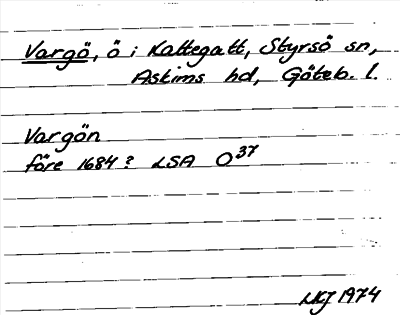 Vargö, ö i Kattegatt, Styrsö sn,
Askims hd, Göteb. l.
Vargön
före 1684? LSA O37
1974